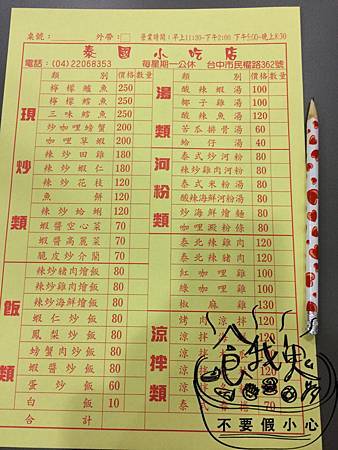 桌號： 外帶：□ 營業時間：早上11:30-下午2:00 下午5:00-晚上8:30
泰國小吃店
電話：(04)22068353 每星期一公休 台中市民權路362號
類別 價格 數量
現炒類
檸檬鱸魚 250
檸檬鱈魚 250
三味鱈魚 250
炒咖哩螃蟹 200
咖哩草蝦 200
辣炒田雞 180
辣炒蝦仁 180
辣炒花枝 120
魚餅 120
辣炒蛤蜊 120
蝦醬空心菜 70
蝦醬高麗菜 70
脆皮炒介蘭 70
飯類
辣炒豬肉燴飯 80
辣炒雞肉燴飯 80
辣炒海鮮燴飯 80
蝦仁炒飯 80
鳳梨炒飯 80
螃蟹肉炒飯 80
蝦醬炒飯 80
蛋炒飯 60
白飯 10
合計
類別 價格 數量
湯類
酸辣蝦湯 100
椰子雞湯 100
酸辣魚湯 100
苦瓜排骨湯 60
蛤仔湯 40
河粉類
泰式炒河粉 80
辣炒雞肉河粉 80
泰式米粉湯 80
酸辣海鮮河粉湯 80
炒海鮮燴麵 80
咖哩澱粉條 80
泰北辣雞肉 120
泰北辣豬肉 120
紅咖哩雞 100
綠咖哩雞 100
椒麻雞 130
涼拌類
烤肉涼拌 120
涼拌
涼拌
涼拌
涼拌
泰式 70
食我鬼
不要假小心